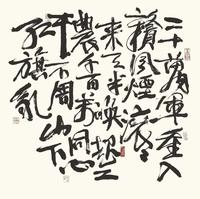 二十萬軍重入
贛風煙滚滚
来天半唤起工
農千百萬同心
干不周山下
红旗乱